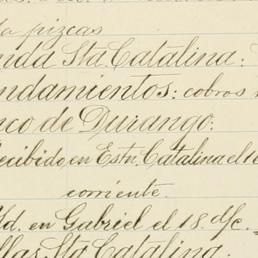 pizcas
nda Sta Catalina:
ndamientos: cobros
nco de Durango:
ecibido en Estn. Catalina el 1
corriente.
d. en Gabriel el 18. dfc.
llas Sta Catalina.